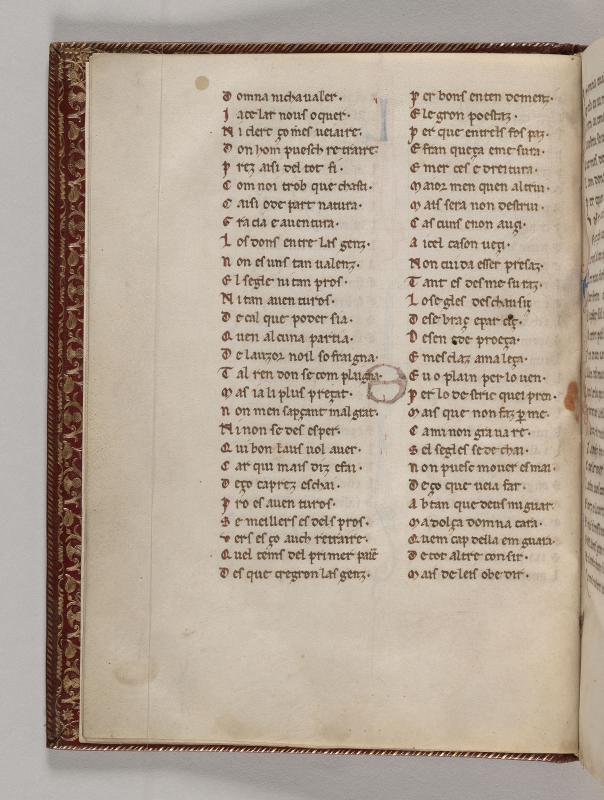 Domna ni chavaler·
Ja celar nous o quer·
Ni clerc ço mes veiaire·
Don hom puesch retraire·
Prez aisi del tot fi·
Com non trob que chasti·
C aisi ode part natura·
Gracia e aventura·
Los dons entre las genz·
Non es uns tan valenz·
El segle ni tan pros·
Ni tan aventuros·
De cui que poder sia·
Quen alcuna partia·
De lauzor noil sofraigna·
Tal ren don se com plaigna·
Mas ia li plus preçat·
Non men sapçant mal grat·
Ni non se des esper·
Qui bon laus vol aver·
Car qui mais diz e fai·
Deço ca prez eschai·
Pro es aventuros·
Se meillers es dels pros·
Vers es ço auch retraire·
Quel tems del primer paire
Des que cregron las genz·
Per bons enten demenz·
E le gron poestaz·
Per que entrels fos paz·
E fran queça e mesura·
E mer ces e dreitura·
Maior men quen altrui·
Mais sera non destrui·
Cas cuns e non auçi·
Aicel cason veçi·
Non cuida esser presaz·
Tant es desmesuraz·
Lo segles deschausiz
De se braç e par tiç·
Desen de proeça·
E mesclaz ama leça·
Eu o plain per lo ven·
Per lo destric quei pren·
Mais que non faz per me·
Cami non grava re·
Sel segles se de chai·
Non puesc mover esmai·
Deço que veia far·
Abtan que deus mi guar
Ma dolça domna cara·
Quem cap della em guara·
De tot altre consir·
Mais de leis obedir·